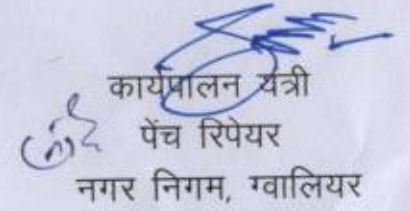 कार्यपालन यंत्री
पेंच रिपेयर
नगर निगम, ग्वालियर